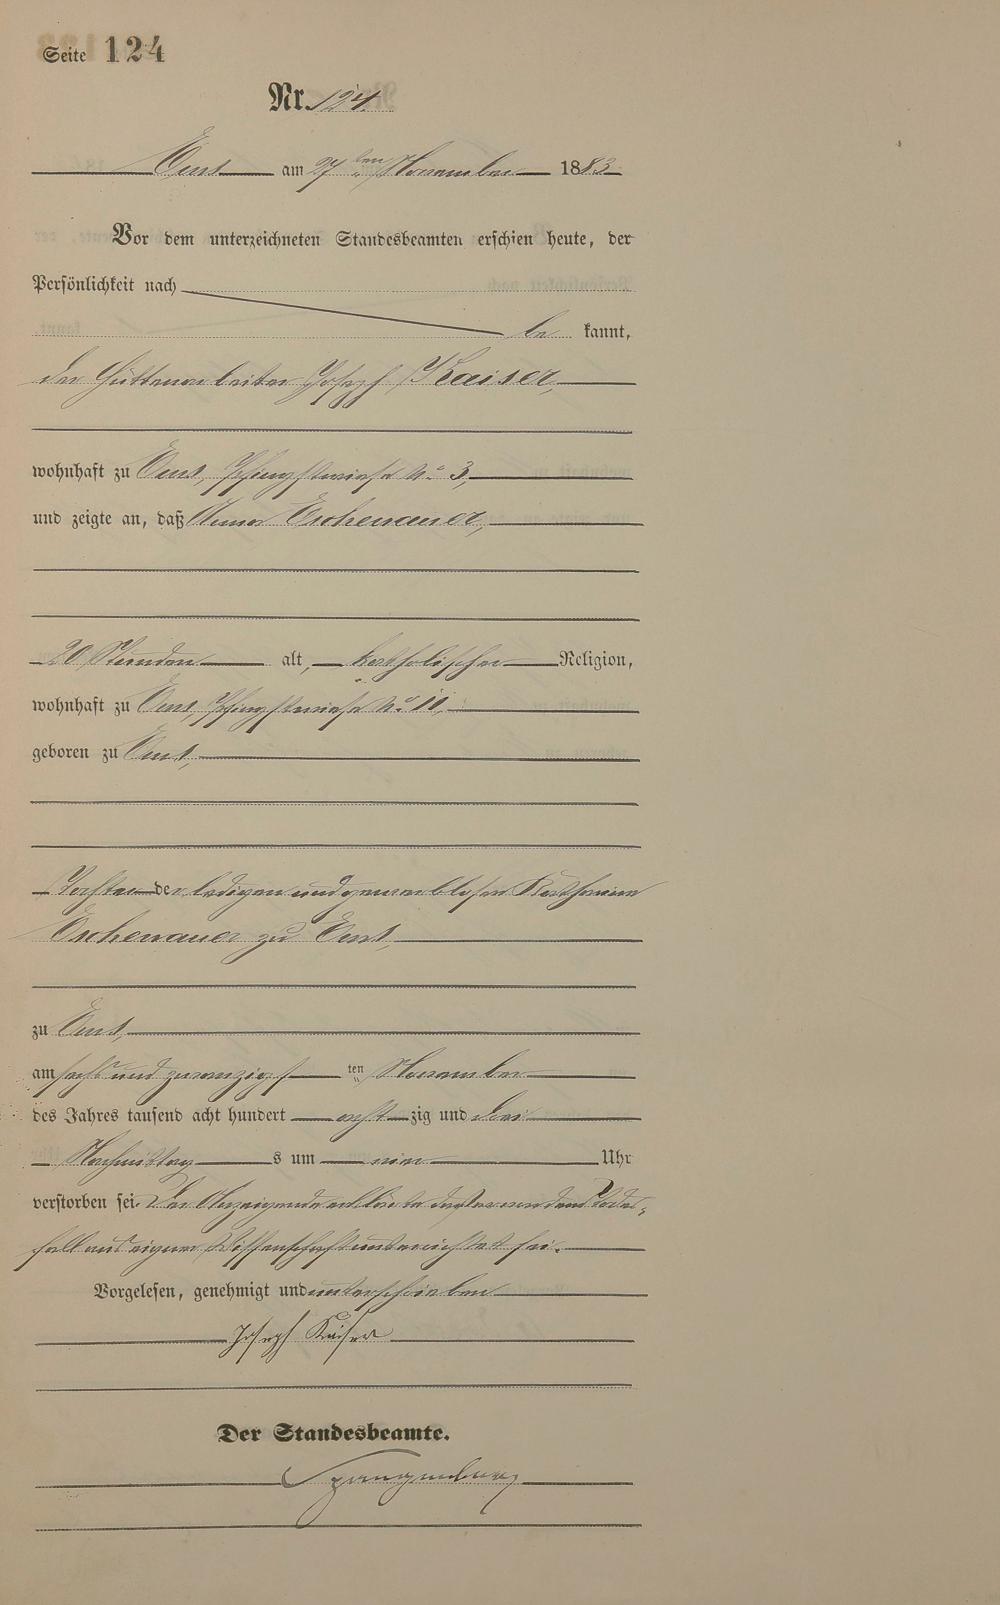 Seite 124
Nr. 124.
Ems am 27ten November 1883
Vor dem unterzeichneten Standesbeamten erschien heute, der
Persönlichkeit nach
be kannt,
der Hüttenarbeiter Joseph Kaiser,
wohnhaft zu Ems, Pfingstwiese No 3,
und zeigte an, daß Anna Eschenauer,
20 Stunden alt, katholischer Religion,
wohnhaft zu Ems, Pfingstwiese No 11,
geboren zu Ems,
Tochter der ledigen und gewerblosen Katharina
Eschenauer zu Ems,
zu Ems,
am sechs und zwanzigsten November
des Jahres tausend acht hundert acht zig und drei
Nachmittag s um vier Uhr
verstorben sei. Der Anzeigende erklärte daß er von dem Todes-
fall aus eigner Wissenschaft unterrichtet sei.
Vorgelesen, genehmigt und unterschrieben
Joseph Kaiser
Der Standesbeamte.
Spangenberg